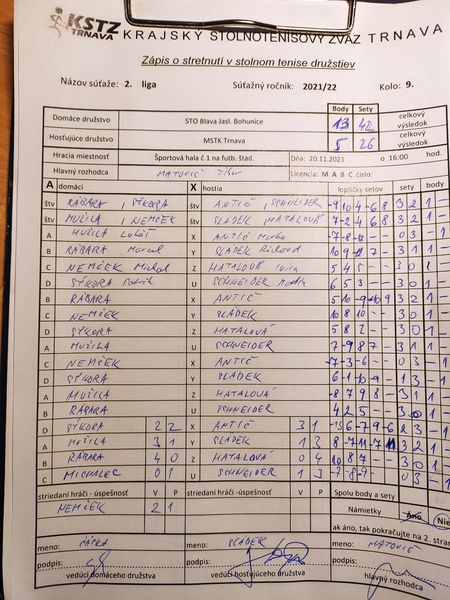 KSTZ TRNAVA KRAJSKÝ STOLNOTENISOVÝ ZVÄZ TRNAVA
Zápis o stretnutí v stolnom tenise družstiev
Názov súťaže: 2. liga Súťažný ročník: 2021/22 Kolo: 9.
Body Sety
Domáce družstvo STO Blava Jasl. Bohunice 13 42 celkový výsledok
Hosťujúce družstvo MSTK Trnava 5 26 celkový výsledok
Hracia miestnosť Športová hala č.1 na futb. štad. Dňa: 20.11.2021 o 16:00 hod.
Hlavný rozhodca MATOVIČ Licencia: M A B C číslo:
A domáci X hostia loptičky setov sety body
štv RÁBARA, SÝKORA štv ANTIČ, SCHNEIDER 3 2 1 -
štv MUŽILA, NEMČEK štv SLÁDEK, HATALOVÁ 3 2 1 -
A MUŽILA Lukáš X ANTIČ
B RÁBARA Marcel Y SLÁDEK Richard 3 1 1 -
C NEMČEK Michal Z HATALOVÁ 5 4 5 - - 3 0 1 -
D SÝKORA Patrik U SCHNEIDER 6 5 3 - - 3 0 1 -
B RÁBARA X ANTIČ 3 2 1 -
C NEMČEK Y SLÁDEK 10 8 10 - - 3 0 1 -
D SÝKORA Z HATALOVÁ 5 8 2 - - 3 0 1 -
A MUŽILA U SCHNEIDER 3 1 1 -
C NEMČEK X ANTIČ -7 -3 -6 - - 0 3 - 1
D SÝKORA Y SLÁDEK 1 3 - 1
A MUŽILA Z HATALOVÁ -8 7 9 8 - 3 1 1 -
B RÁBARA U SCHNEIDER 4 2 5 - - 3 0 1 -
D SÝKORA 2 2 X ANTIČ 3 1
A MUŽILA 3 1 Y SLÁDEK 1 3 3 2 1 -
B RÁBARA 4 0 Z HATALOVÁ 0 4 3 0 1 -
C MICHALEC 0 1 U SCHNEIDER 1 3 -7 -8 -9 0 3 - 1
striedaní hráči - úspešnosť V P striedaní hráči - úspešnosť V P Spolu body a sety
NEMČEK 2 1 Námietky Áno Nie
ak áno, tak pokračujte na 2. strane
meno: meno: SLÁDEK meno: MATOVIČ
podpis: podpis: podpis:
vedúci domáceho družstva vedúci hosťujúceho družstva hlavný rozhodca